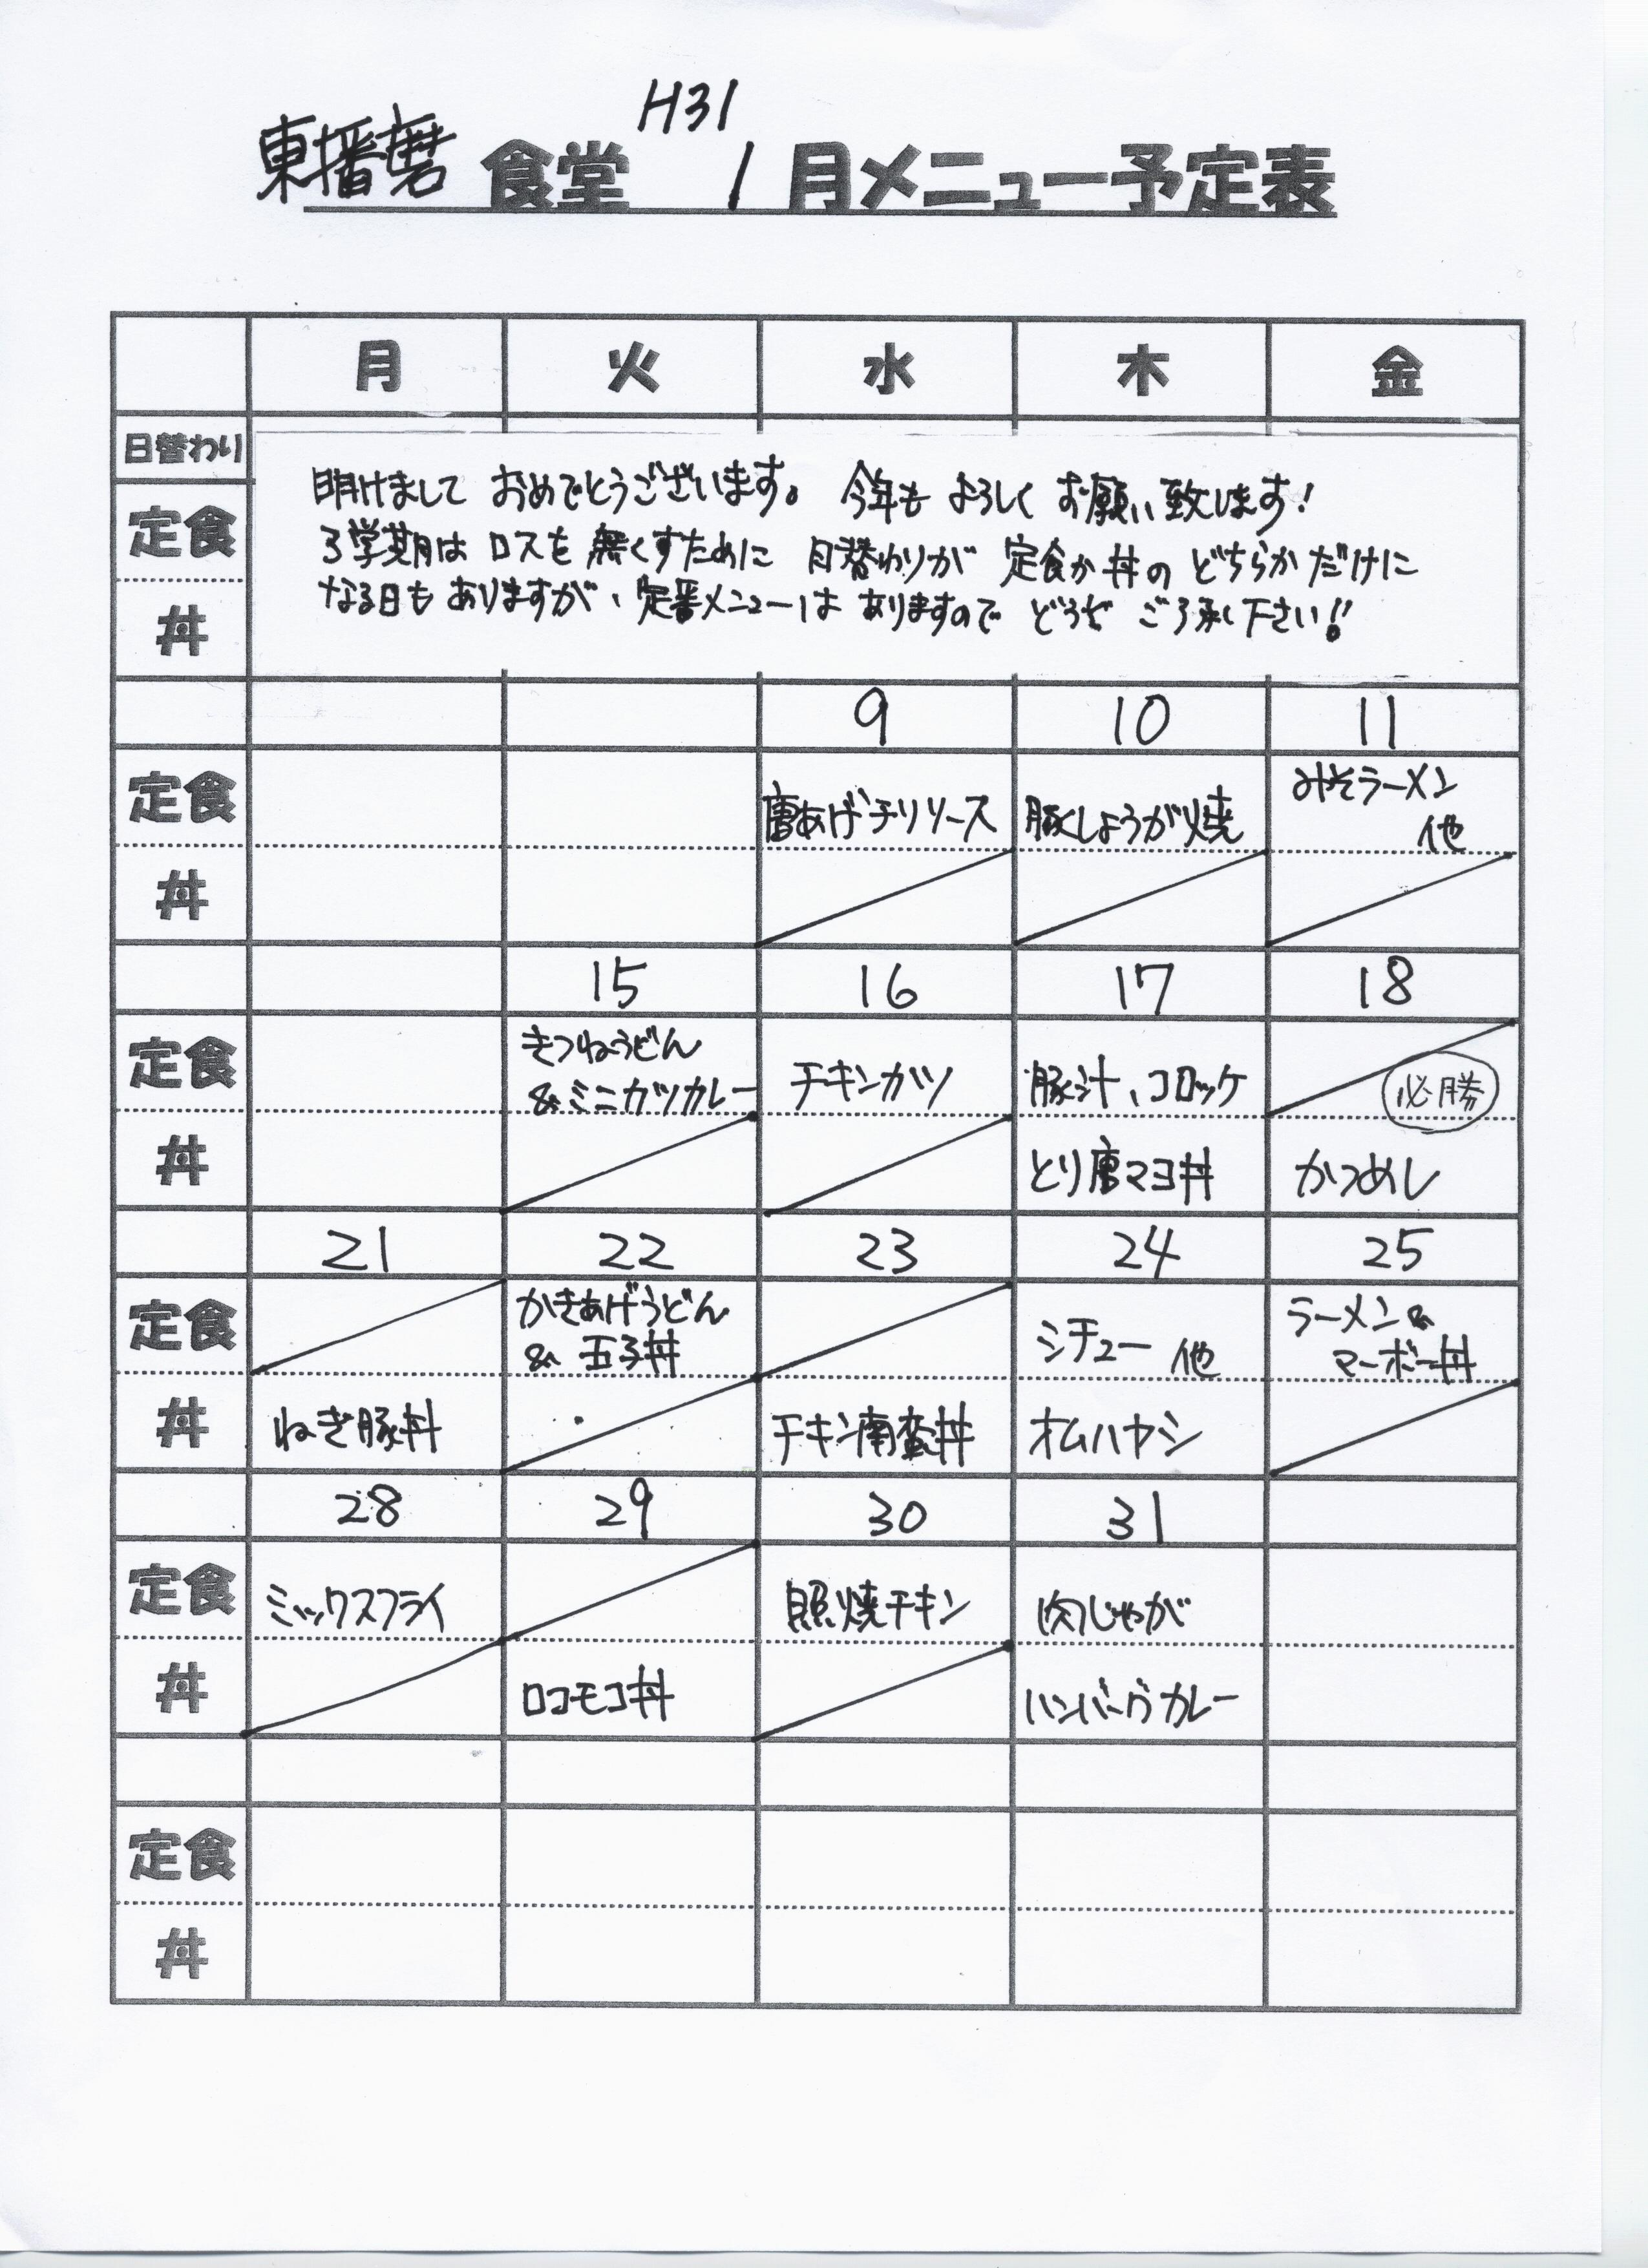 H31
東播磨 食堂 1 月メニュー予定表
月 火 水 木 金
日替わり
定食
丼
明けまして おめでとうございます。 今年も よろしく お願い致します!
3学期は ロスを 無くすために 日替わりが 定食か丼の どちらかだけに
なる日も ありますが、定番メニューは ありますので どうぞ ご了承下さい!!
9 10 11
定食
唐あげチリソース
豚しょうが焼
みそラーメン
他
丼
15 16 17 18
定食
きつねうどん
&ミニカツカレー
チキンカツ
豚汁、コロッケ
必勝
丼
とり唐マヨ丼
かつめし
21 22 23 24 25
定食
かきあげうどん
& 玉子丼
シチュー 他
ラーメン&
マーボー丼
丼
ねぎ豚丼
チキン南蛮丼
オムハヤシ
28 29 30 31
定食
ミックスフライ
照焼チキン
肉じゃが
丼
ロコモコ丼
ハンバーグカレー
定食
丼